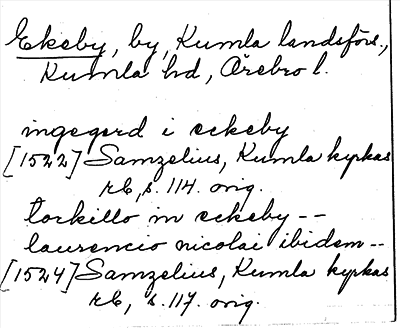 Ekeby, by, Kumla landsförs.,
Kumla hd, Örebro l.
ingegerd i eekeby
[1522] Samzelius, Kumla kyrkas
rb, s. 114. orig.
torkillo in eekeby --
laurencio nicolai ibidem --
[1524] Samzelius, Kumla kyrkas
rb, s. 117. orig.